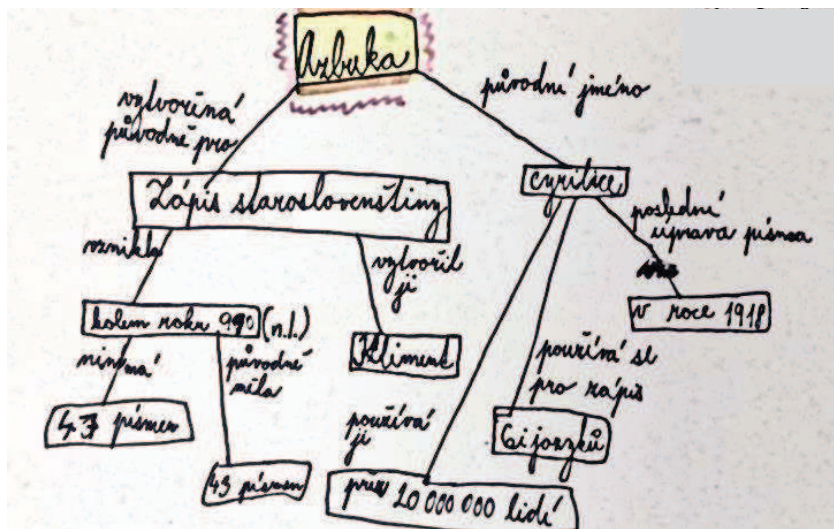 Azbuka
vytvořená
původně pro
původní jméno
Zápis staroslovenštiny
cyrilice
vznikla
vytvořil
ji
poslední
úprava písma
kolem roku 990 (n.l.)
Kliment
v roce 1918
nimmá
původně
měla
používá se
pro zápis
používá
ji
43 písmen
43 písmen
6i jazyků
přes 20 000 000 lidí